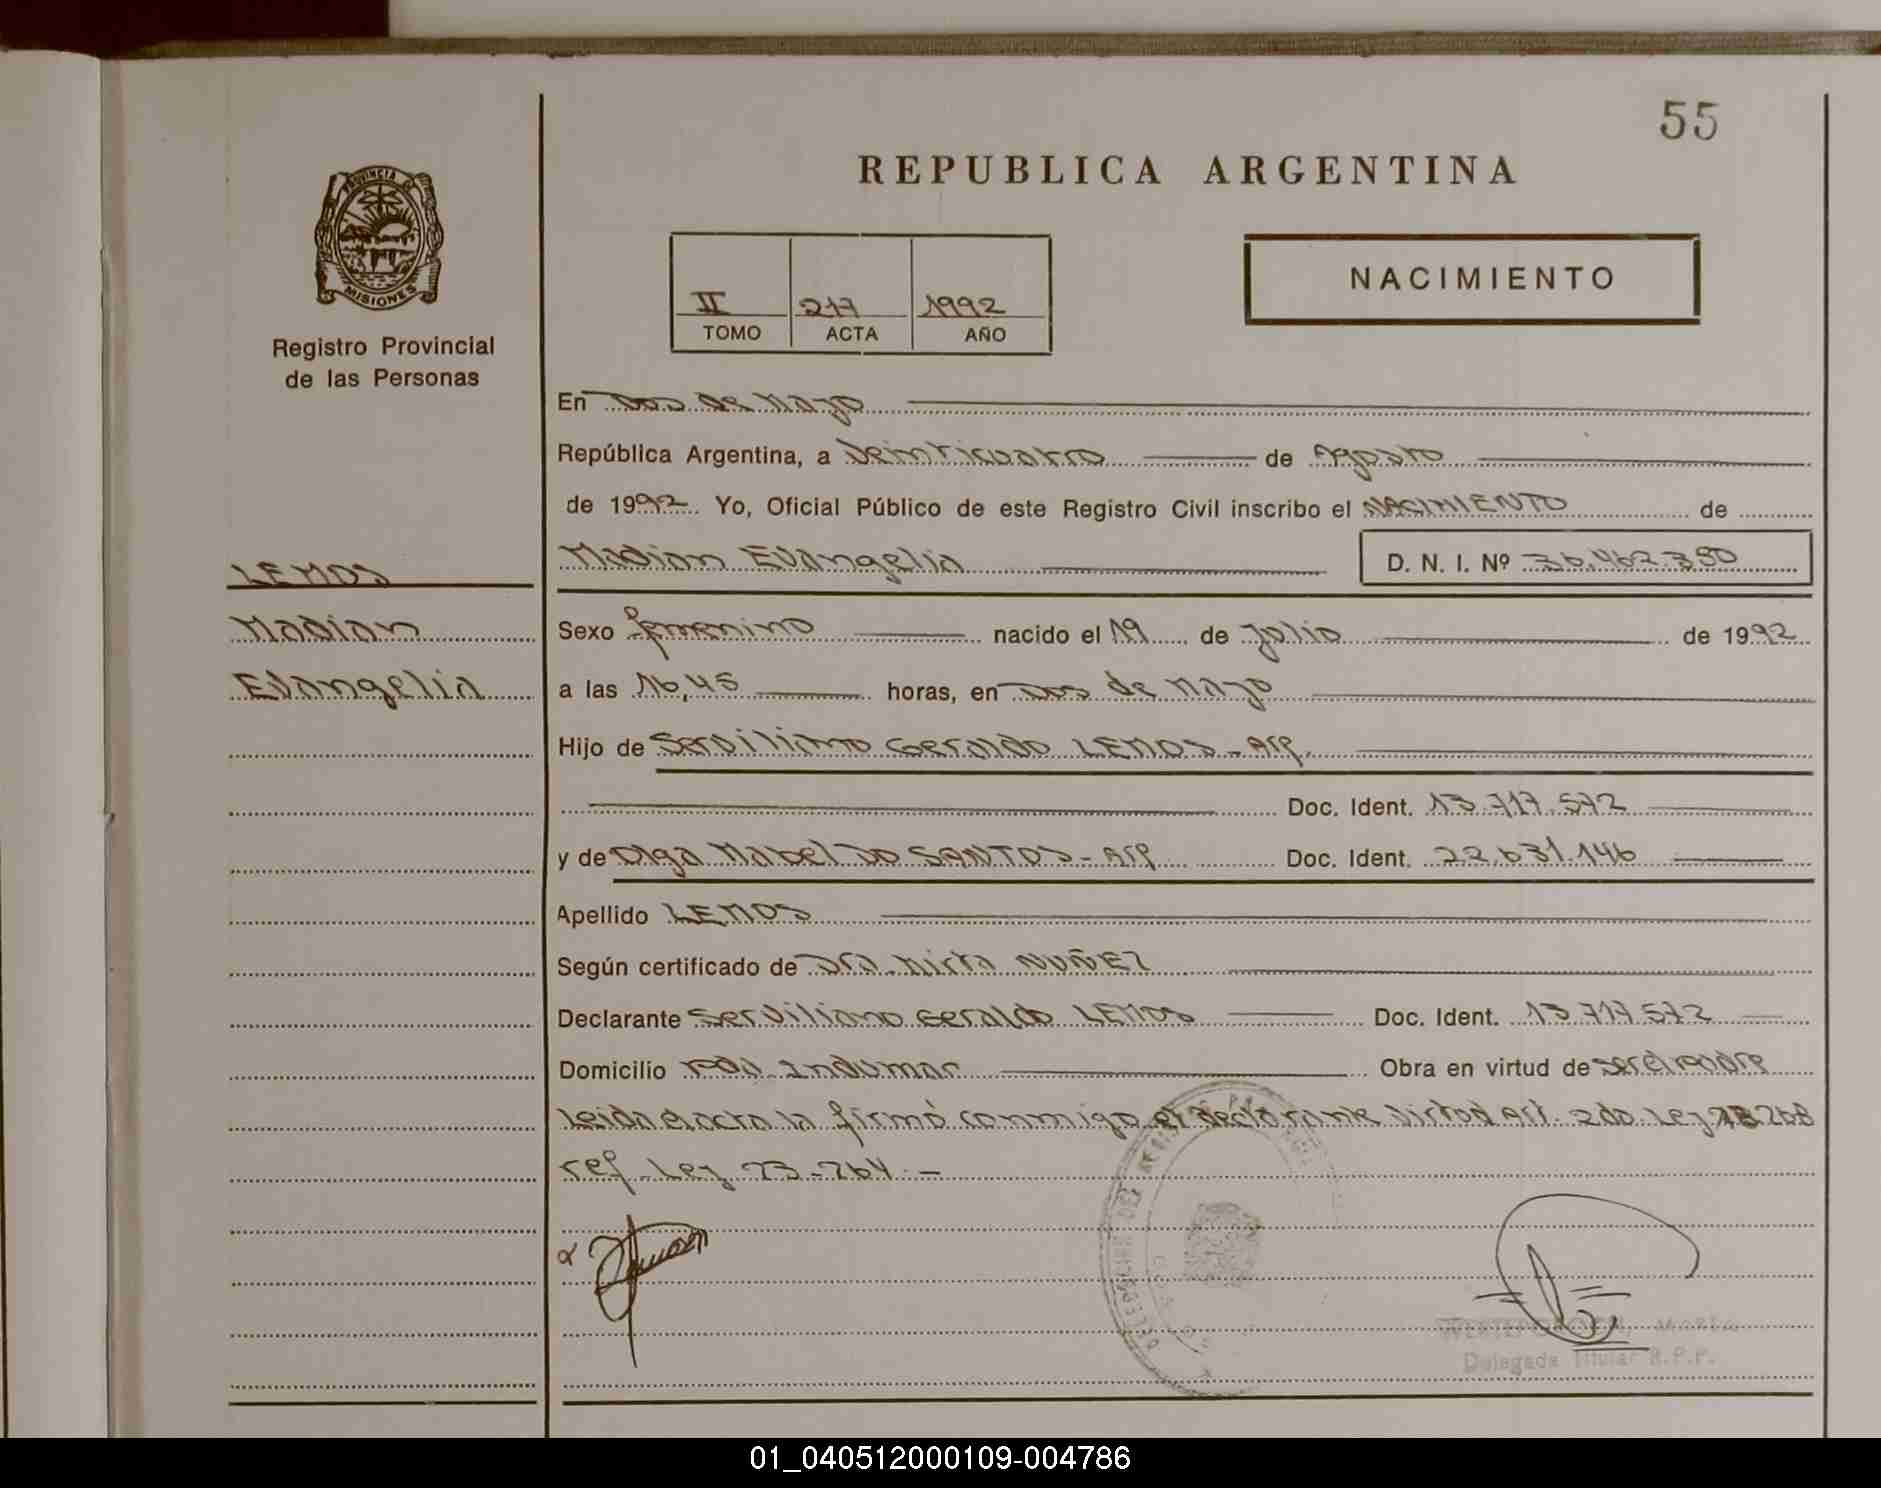 55
REPUBLICA ARGENTINA
PROVINCIA DE
MISIONES
Registro Provincial
de las Personas
II 217 1992
TOMO ACTA AÑO
NACIMIENTO
En Dos de Mayo
República Argentina, a Veinticuatro de Agosto
de 1992. Yo, Oficial Público de este Registro Civil inscribo el NACIMIENTO de
Madian Evangelia D. N. I. Nº 36.462.350
LEMOS
Madian
Evangelia
Sexo femenino nacido el 19 de Julio de 1992
a las 16,45 horas, en Dos de Mayo
Hijo de Serviliano Geraldo LEMOS - Arg.
Doc. Ident. 13.717.572
y de Olga Mabel DO SANTOS - Arg Doc. Ident. 22.631.146
Apellido LEMOS
Según certificado de Dra. Mirta NUÑEZ
Declarante Serviliano Geraldo LEMOS Doc. Ident. 13.717.572
Domicilio Indumar Obra en virtud de ser el padre
Leida el acta la firmó conmigo el declarante virtud art. 2do. Ley
ref. Ley 23-264.-
Delegada Titular R.P.P.
01_040512000109-004786